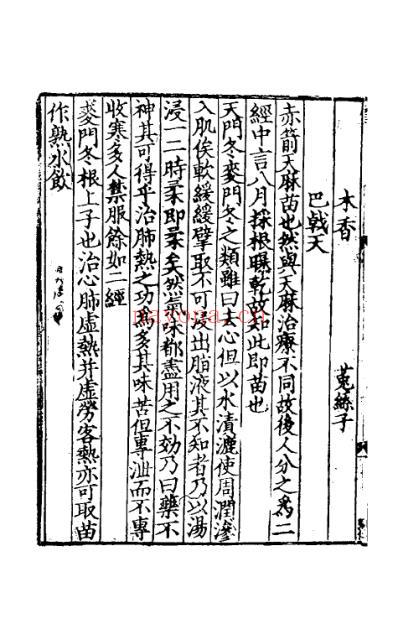 木香　菟絲子
巴戟天
赤箭天麻苗也然與天麻治療不同故後人分之爲二
經中言八月採根曝乾故知此即苗也
天門冬麥門冬之類雖曰去心但以水漬漉使周潤滲
入肌俟軟緩緩擘取不可浸出脂液其不知者乃以湯
浸一二時柔即柔矣然氣味都盡用之不効乃曰藥不
神其可得乎治肺熱之功爲多其味苦但專泄而不專
收寒多人禁服餘如二經
麥門冬根上子也治心肺虛熱并虛勞客熱亦可取苗
作熟水飲
nayona.cn